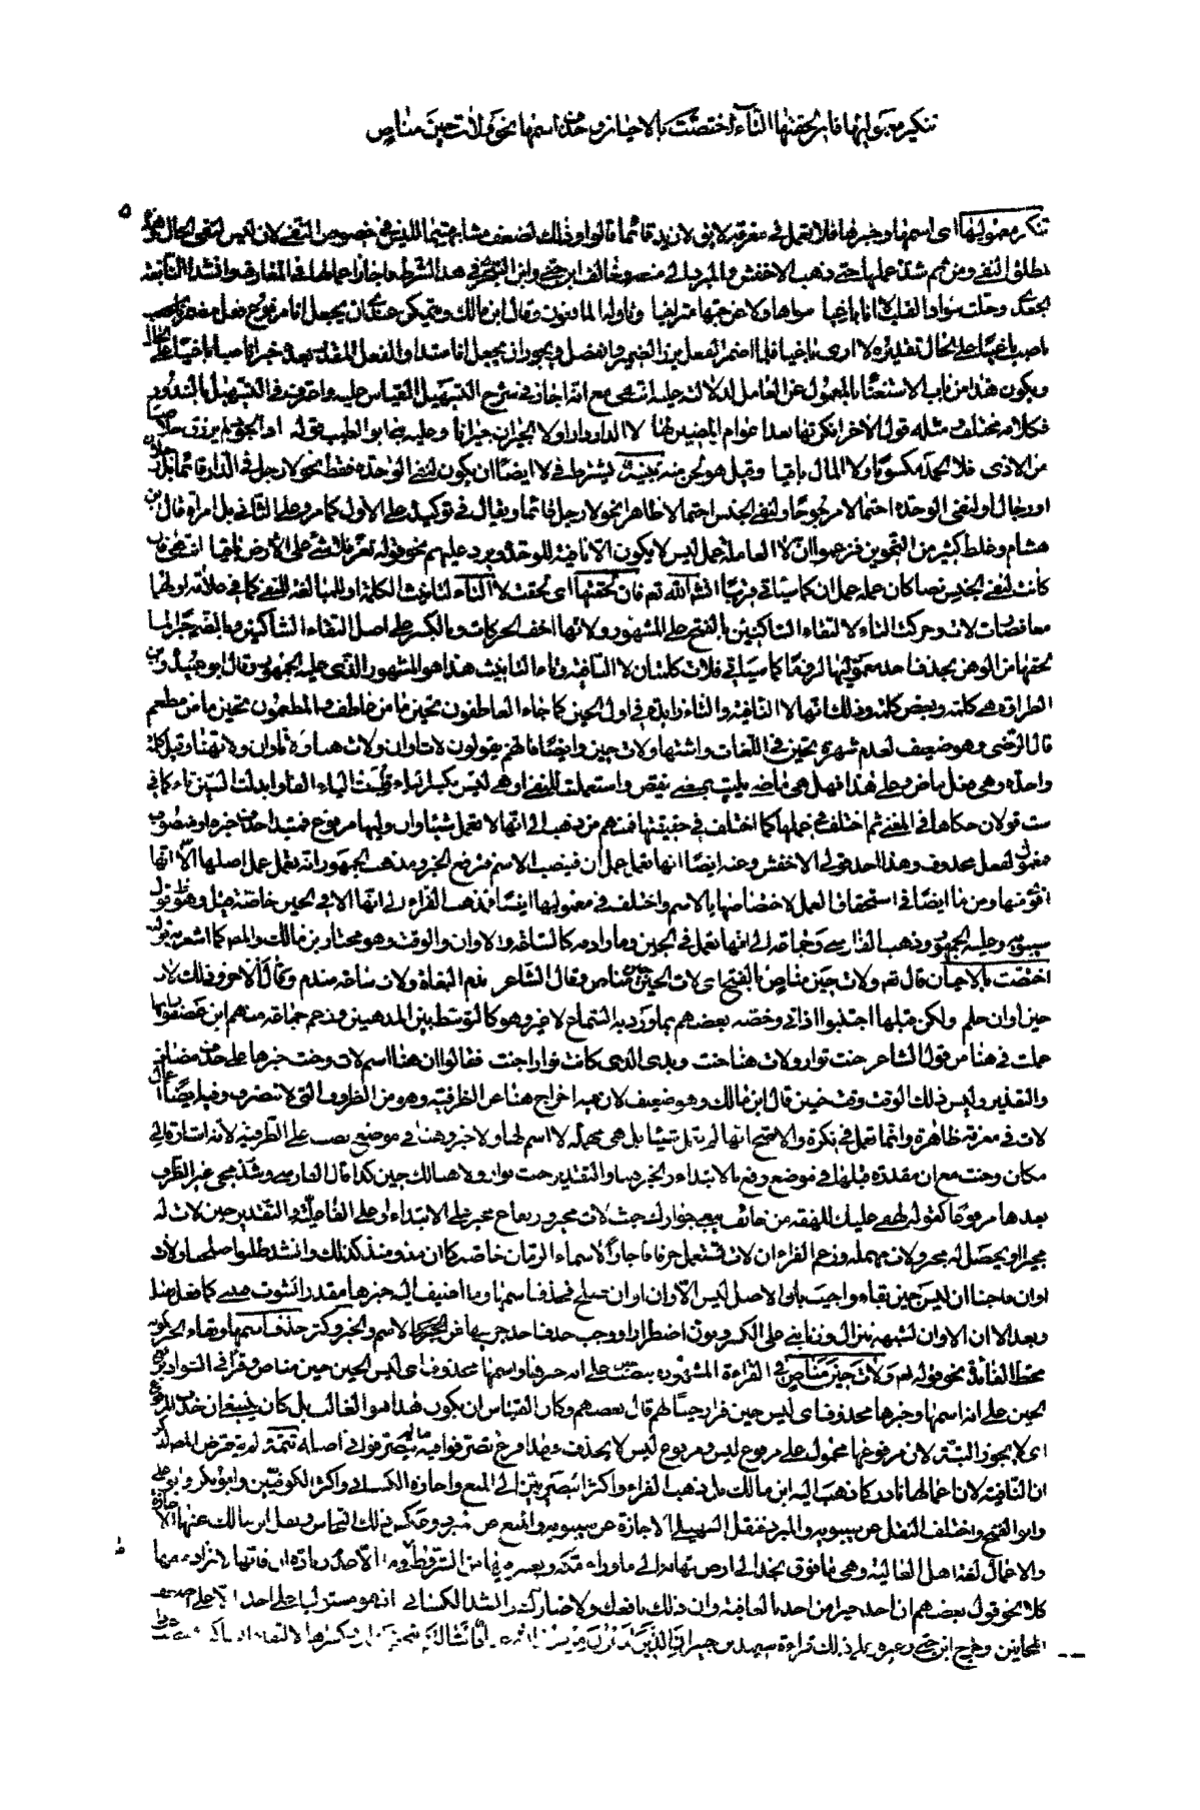 تنكير معموليها فان لحقتها التاء اختصّت بالاحيان وحذف اسمها نحو ولات حين مناص
تنكير معموليها اى اسمها وخبرها فلا تعمل في معرفة لا يق لا زيد قائما قالوا وذلك لضعف مشابهتهما لليس في خصوص النفي لان ليس لنفى الحال
مطلق النفى ومن ثم شذ عملها حتى ذهب الاخفش والمبرد الى منعه وخالف ابن جنى وابن الشجرى في هذا الشرط فاجازا عمالها في المعارف وانشدا للنابغة
الجعدى وحلت سواد القلب لا انا باغيا سواها ولا عن حبها متراخيا وتاوله المانعون وقال ابن مالك ويمكن عندى ان يجعل انا مرفوع فعل مضمر
ناصب باغيا على الحال تقديره لا ارى باغيا فلما اضمر الفعل برز الضمير وانفصل ويجوز ان يجعل انا مبتدا والفعل المقدر بعده خبرا ناصبا باغيا على
ويكون هذا من باب الاستغناء بالمعمول عن العامل لدلالته عليه انتهى مع انه اجاز في شرح التسهيل القياس عليه واعترف في التسهيل بالندور
فكلامه مختلف ومثله قول الاخر انكرتها بعد اعوام مضين لها لا الدار دارا ولا الجيران جيرانا وعليه بنى ابو الطيب قوله اذا الجود لم يرزق خلاصا
من الاذى فلا الحمد مكسوبا ولا المال باقيا وقيل هو لحن منه تنبيه يشترط في لا ايضا ان يكون لنفى الوحدة فقط نحو لا رجل في الدار قائما بل
او رجال او لنفى الوحدة احتمالا مرجوحا ولنفى الجنس احتمالا ظاهرا نحو لا رجل قائما ويقال في توكيده على الاول كما مر وعلى الثانى بل امراة قال ابن
هشام وغلط كثير من النحويين فزعموا ان لا العاملة عمل ليس لا يكون الا نافية للوحدة ويرد عليهم نحو قوله تعز فلا شئ على الارض باقيا انتهى فان
كانت لنفى الجنس نصا كان عمله عمل ان كما سياتى قريبا انشاء الله تعم فان لحقتها اى لحقت لا التاء لتانيث الكلمة او للمبالغة للنفى كما في علامة او لهما
معا فصارت لات وحركت التاء لالتقاء الساكنين بالفتح على المشهور ولانها اخف الحركات وبالكسر على اصل التقاء الساكنين وبالضم جبرا لما
لحقها من الوهن بحذف احد معموليها لزوما كما سياتى فلات كلمتان لا النافية وتاء التانيث هذا هو المشهور الذى عليه الجمهور وقال ابو عبيدة وابن
الطراوة هى كلمة وبعض كلمة وذلك انها لا النافية والتاء زايدة في اول الحين كما جاء العاطفون تحين ما من عاطف والمطعمون تحين ما من مطعم
قال الرضى وهو ضعيف لعدم شهرة تحين في اللغات واشتهار لات حين وايضا فانهم يقولون لات اوان ولات هنا ولا يقال تاوان ولا تهنا وقيل كلمة
واحدة وهى فعل ماض وعلى هذا فهل هى ماضى يليت بمعنى ينقص واستعملت للنفى او هى ليس بكسر الياء قلبت الياء الفا وابدلت السين تاء كما في
ست قولان حكاهما في المغنى ثم اختلف في عملها كما اختلف في حقيقتها فمنهم من ذهب الى انها لا تعمل شيئا وان وليها مرفوع فمبتدا حذف خبره او منصوب
فمعمول لفعل محذوف وهذا احد قولى الاخفش وعنه ايضا انها تعمل عمل ان فينصب الاسم وترفع الخبر ومذهب الجمهور انه يعمل عمل اصلها الا انها
اقوى منها ومن ما ايضا في استحقاق العمل لاختصاصها بالاسم واختلف في معموليها ايضا فذهب الفراء الى انها لا في الحين خاصة قيل وهو قول
سيبويه وعليه الجمهور وذهب الفارسى وجماعة الى انها تعمل في الحين وما رادفه كالساعة والاوان والوقت وهو مختار بن مالك والمص كما اشعر به قوله
اختصت بالاحيان قال تعم ولات حين مناص بالفتح اى لات الحين حين مناص وقال الشاعر ندم البغاة ولات ساعة مندم وقال الاخر وذلك لات
حين اوان حلم ولكن قبلها اجتنبوا اذاتى وخصه بعضهم بما ورد به السماع لا غير وهو كالتوسط بين المذهبين وزعم جماعة منهم ابن عصفور انها
عملت في هنا من قول الشاعر حنت نوار ولات هنا حنت وبدى الذى كانت نوار اجنت فقالوا ان هنا اسم لات وحنت خبرها على حذف مضاف
والتقدير وليس ذلك الوقت وقت حنين قال ابن مالك وهو ضعيف لان فيه اخراج هنا عن الظرفية وهو من الظروف التى لا تتصرف وفيه ايضا اعمال
لات في معرفة ظاهرة وانما تعمل في نكرة والاصح انها لم تعمل شيئا بل هى مهملة لا اسم لها ولا خبر وهنا في موضع نصب على الظرفية لانه اشارة الى
مكان وحنت مع ان مقدرة قبلها في موضع رفع بالابتداء والخبر هنا والتقدير حنت نوار ولا هنالك حنين كذا قال الفارسى وشذ مجى غير الظرف
بعدها مرفوعا كقوله لهفى عليك للهفة من خائف يبغى جوارك حين لات مجير وارتفاع مجير على الابتداء او على الفاعلية والتقدير حين لات له
مجير او يحصل له مجير ولات مهملة وزعم الفراء ان لات تستعمل حرفا جارا لاسماء الزمان خاصة كما ان مذ ومنذ كذلك وانشد طلبوا صلحنا ولات
اوان فاجبنا ان ليس حين بقاء واجيب بان الاصل ليس الاوان اوان صلح فحذف اسمها وما اضيف اليه خبرها
وبعد الا ان الاوان لشبهه بنزال وزنا بنى على الكسر ونون اضطرارا ووجب حذف احد جزئيها من الاسم والخبر وكثر حذف اسمها وبقاء الخبر
محط الفائدة نحو قوله تعم ولات حين مناص في القراءة المشهورة بنصب على انه خبرها واسمها محذوف اى ليس الحين حين مناص وقرا في الشواذ برفع
الحين على انه اسمها وخبرها محذوف اى ليس حين فرار حينا لهم قال بعضهم وكان القياس ان يكون هذا هو الغالب بل كان ينبغى ان حذف المرفوع
اى لا يجوز البتة لان مرفوعها محمول على مرفوع ليس ومرفوع ليس لا يحذف وهذا فرع تصرفوا فيه ما لم يتصرفوا في اصله تتمة لم يتعرض المص لذكر
ان النافية لان اعمالها نادر كما ذهب اليه ابن مالك بل ذهب الفراء واكثر البصريين الى المنع واجازه الكسائى واكثر الكوفيين وابو بكر وابو على
وابو الفتح واختلف النقل عن سيبويه والمبرد فنقل السهيلى الاجازة عن سيبويه والمنع عن المبرد وعكس ذلك النحاس ونقل ابن مالك عنهما الاجازة
والاعمال لغة اهل العالية وهى ما فوق نجد الى ارض تهامة الى ما وراء مكة
كلا نحو قول بعضهم ان احد خيرا من احد الا بالعافية وان ذلك نافعك ولا ضارك وانشد الكسائى ان هو مستوليا على احد الا على اضعف
المجانين وخرج ابن جنى وغيره على ذلك قراءة سعيد بن جبير ان الذين تدعون من دون الله